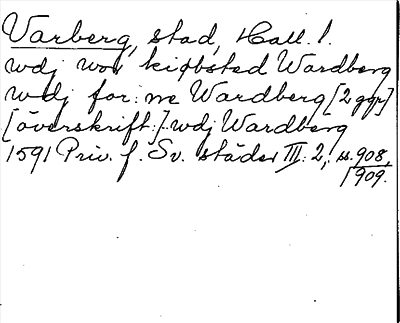 Varberg, stad, Hall. l.
wdj wor kiøbsted Wardberg
wdj for:ne Wardberg [2 ggr]
[överskrift:] wdj Wardberg
1591 Priv. f. Sv. städer III: 2, s. 908,
909.